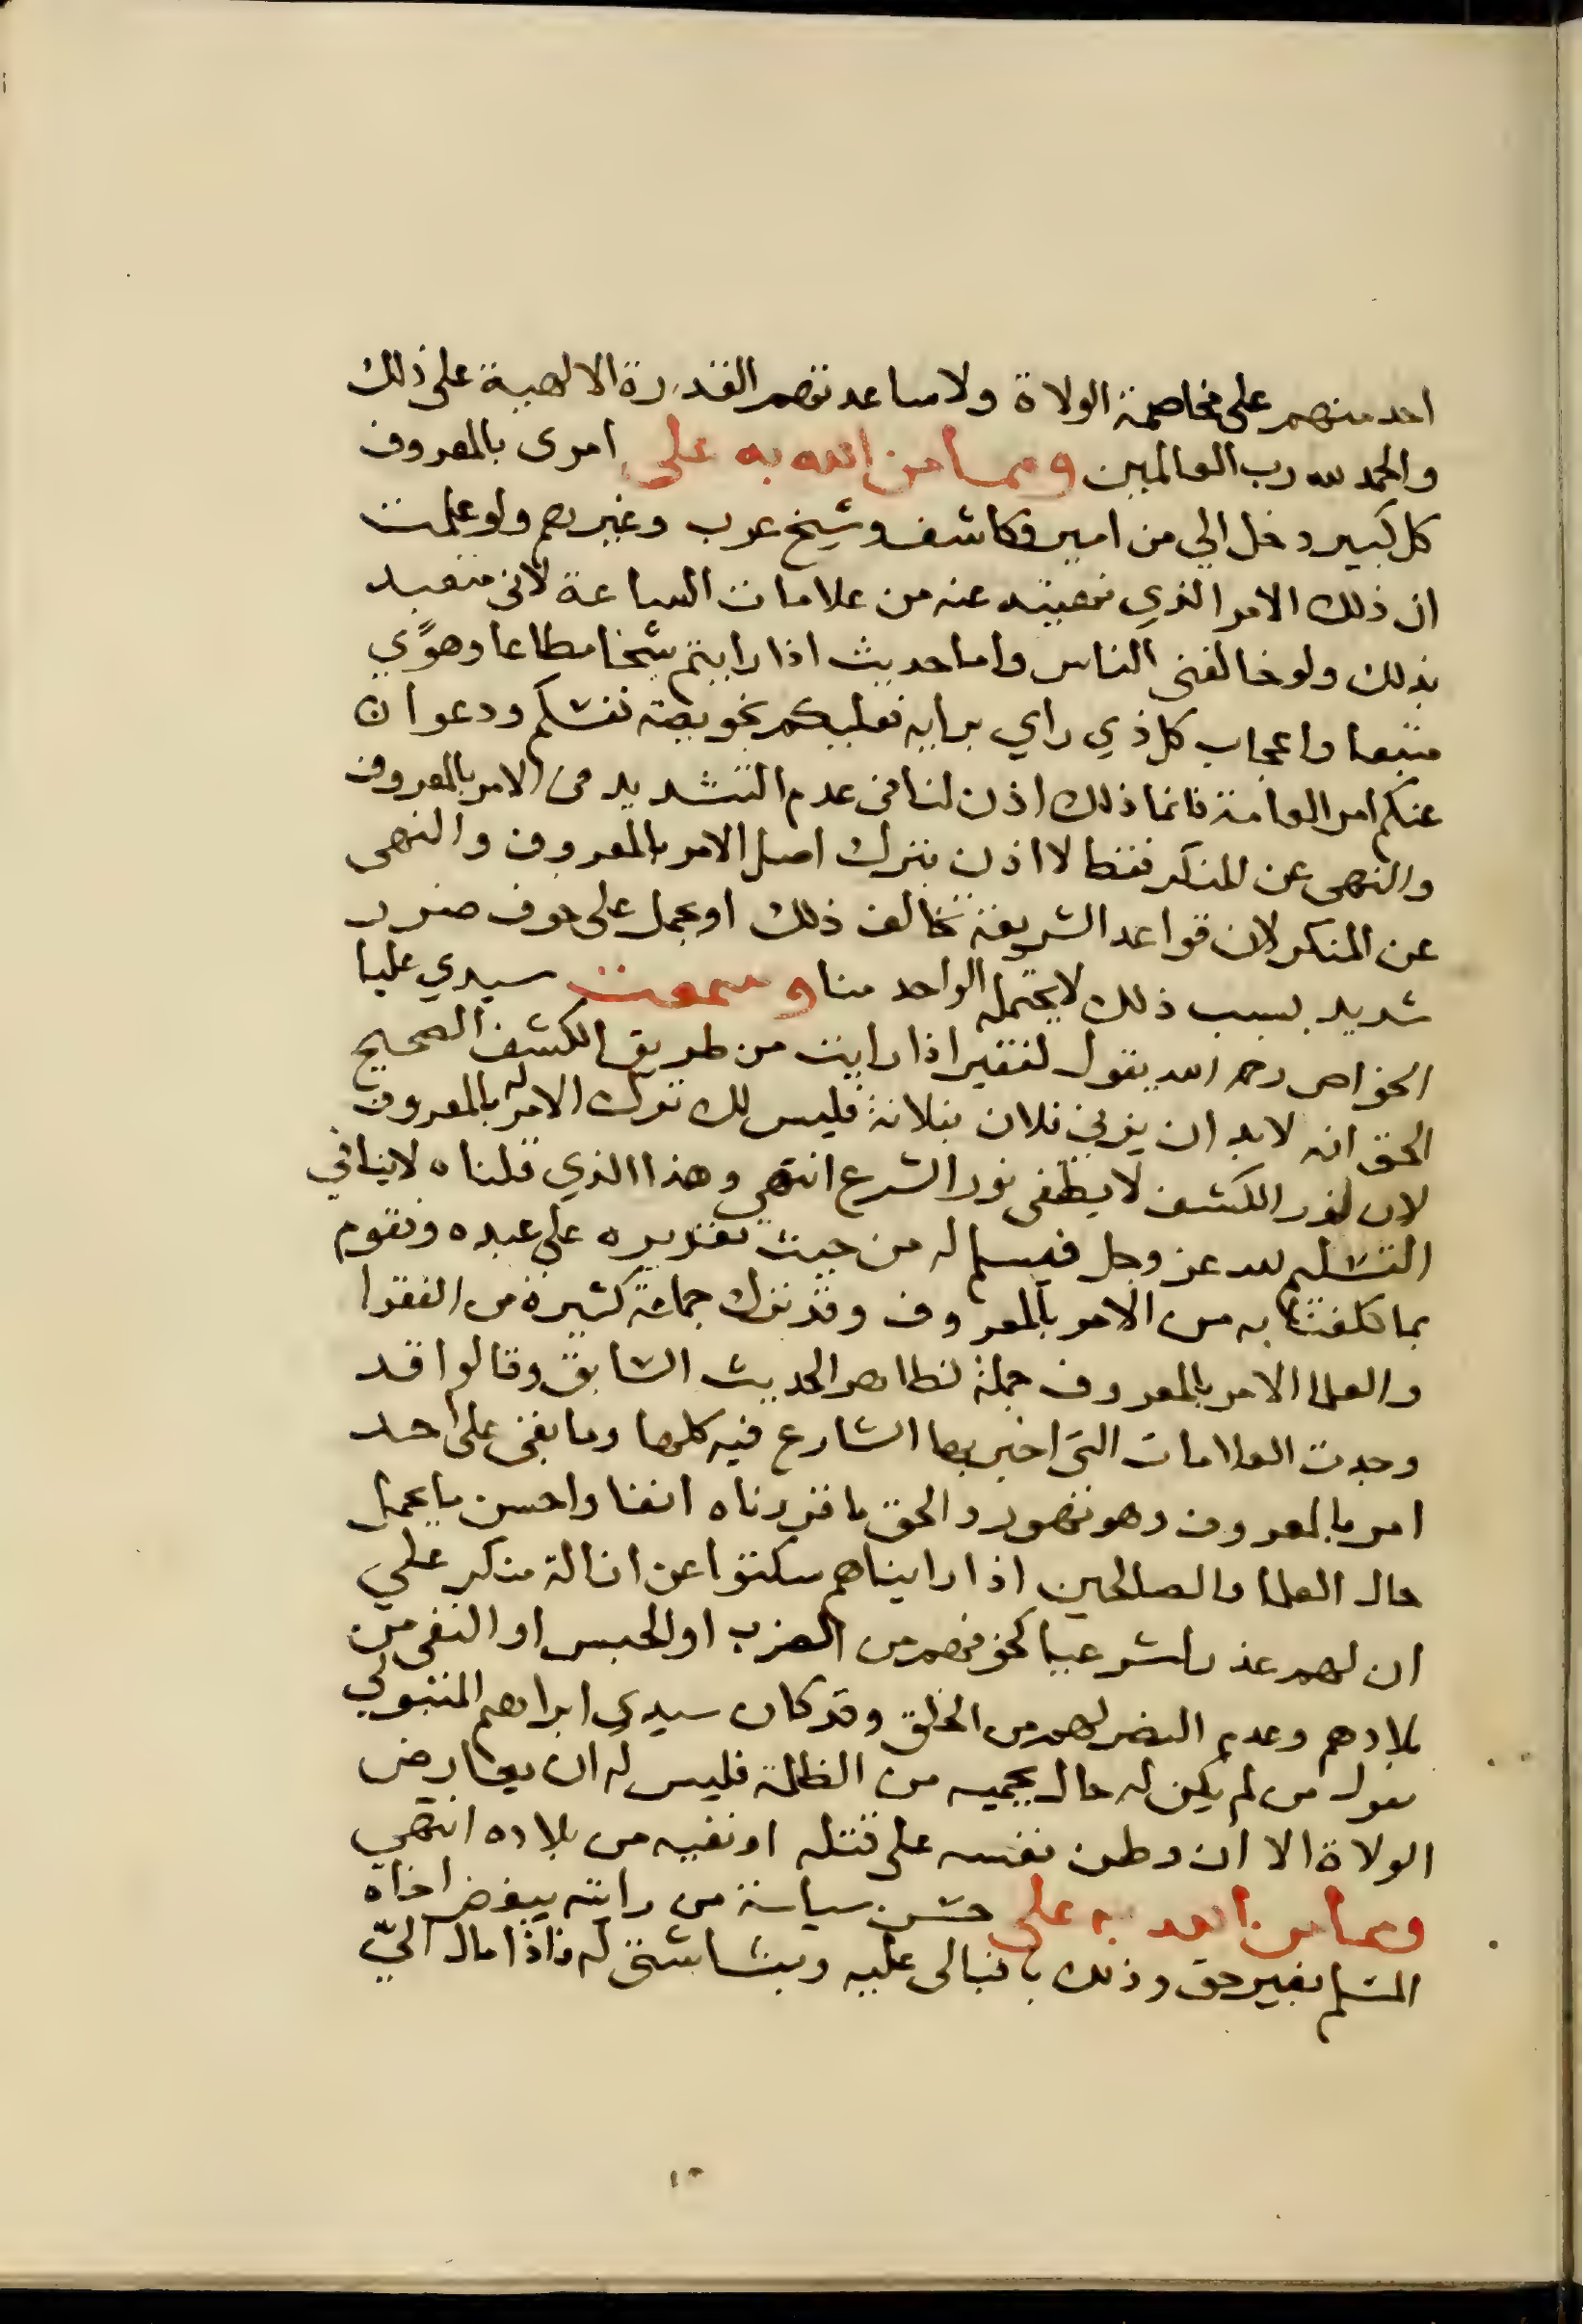 احد منهم على مخاصمة الولاة ولا ساعدتهم القدرة الالهية على ذلك
والحمد لله رب العالمين ومما من الله به على امرى بالمعروف
كل كبير دخل الي من امير وكاشف وشيخ عرب وغيرهم ولو علمت
ان ذلك الامر الذي نهيته عنه من علامات الساعة لانى متعبد
بذلك ولو خالفنى الناس واما حديث اذا رايتم شحا مطاعا وهوًي
متبعا واعجاب كل ذي راي برايه فعليكم بخويصة نفسكم ودعوا ن
عنكم امر العامة فانما ذلك اذن لنا فى عدم التشديد فى الامر بالمعروف
والنهى عن المنكر فقط لا اذن بترك اصل الامر بالمعروف والنهى
عن المنكر لان قواعد الشريعة تخالف ذلك او يحمل على خوف ضرر
شديد بسبب ذلك لا يحتمله الواحد منا وسمعت سيدي عليا
الخواص رحمه الله يقول لفقير اذا رايت من طريق الكشف الصحيح
الحق انه لابد ان يزني فلان بفلانة فليس لك ترك الامر له بالمعروف
لان نور الكشف لا يطفى نور الشرع انتهي وهذا الذي قلناه لاينافي
التسليم لله عز وجل فيسلم له من حيث تقديره على عبده ونقوم
بما كلفنا به من الامر بالمعروف وقد ترك جماعة كثيرة من الفقرا
والعلما الامر بالمعروف جملة لظاهر الحديث السابق وقالوا قد
وجدت العلامات التى اخبر بها الشارع فيه كلها وما بقى على احد
امر بالمعروف وهو تهور والحق ما قررناه انفا واحسن ما يحمل
حال العلما والصالحين اذا رايناهم سكتوا عن ازالة منكر علي
ان لهم عذرا شرعيا كخوفهم من الضرب او الحبس او النفى من
بلادهم وعدم النصر لهم من الخلق وقد كان سيدي ابراهيم المتبولي
يقول من لم يكن له حال يحميه من الظلمة فليس له ان يعارض
الولاة الا ان وطن نفسه على قتله او نفيه من بلاده انتهي
ومما من الله به على حسن سياسة من رايته يبغض اخاه
المسلم بغير حق وذلك باقبالى عليه وبشاشتى له فاذا مال اليّ